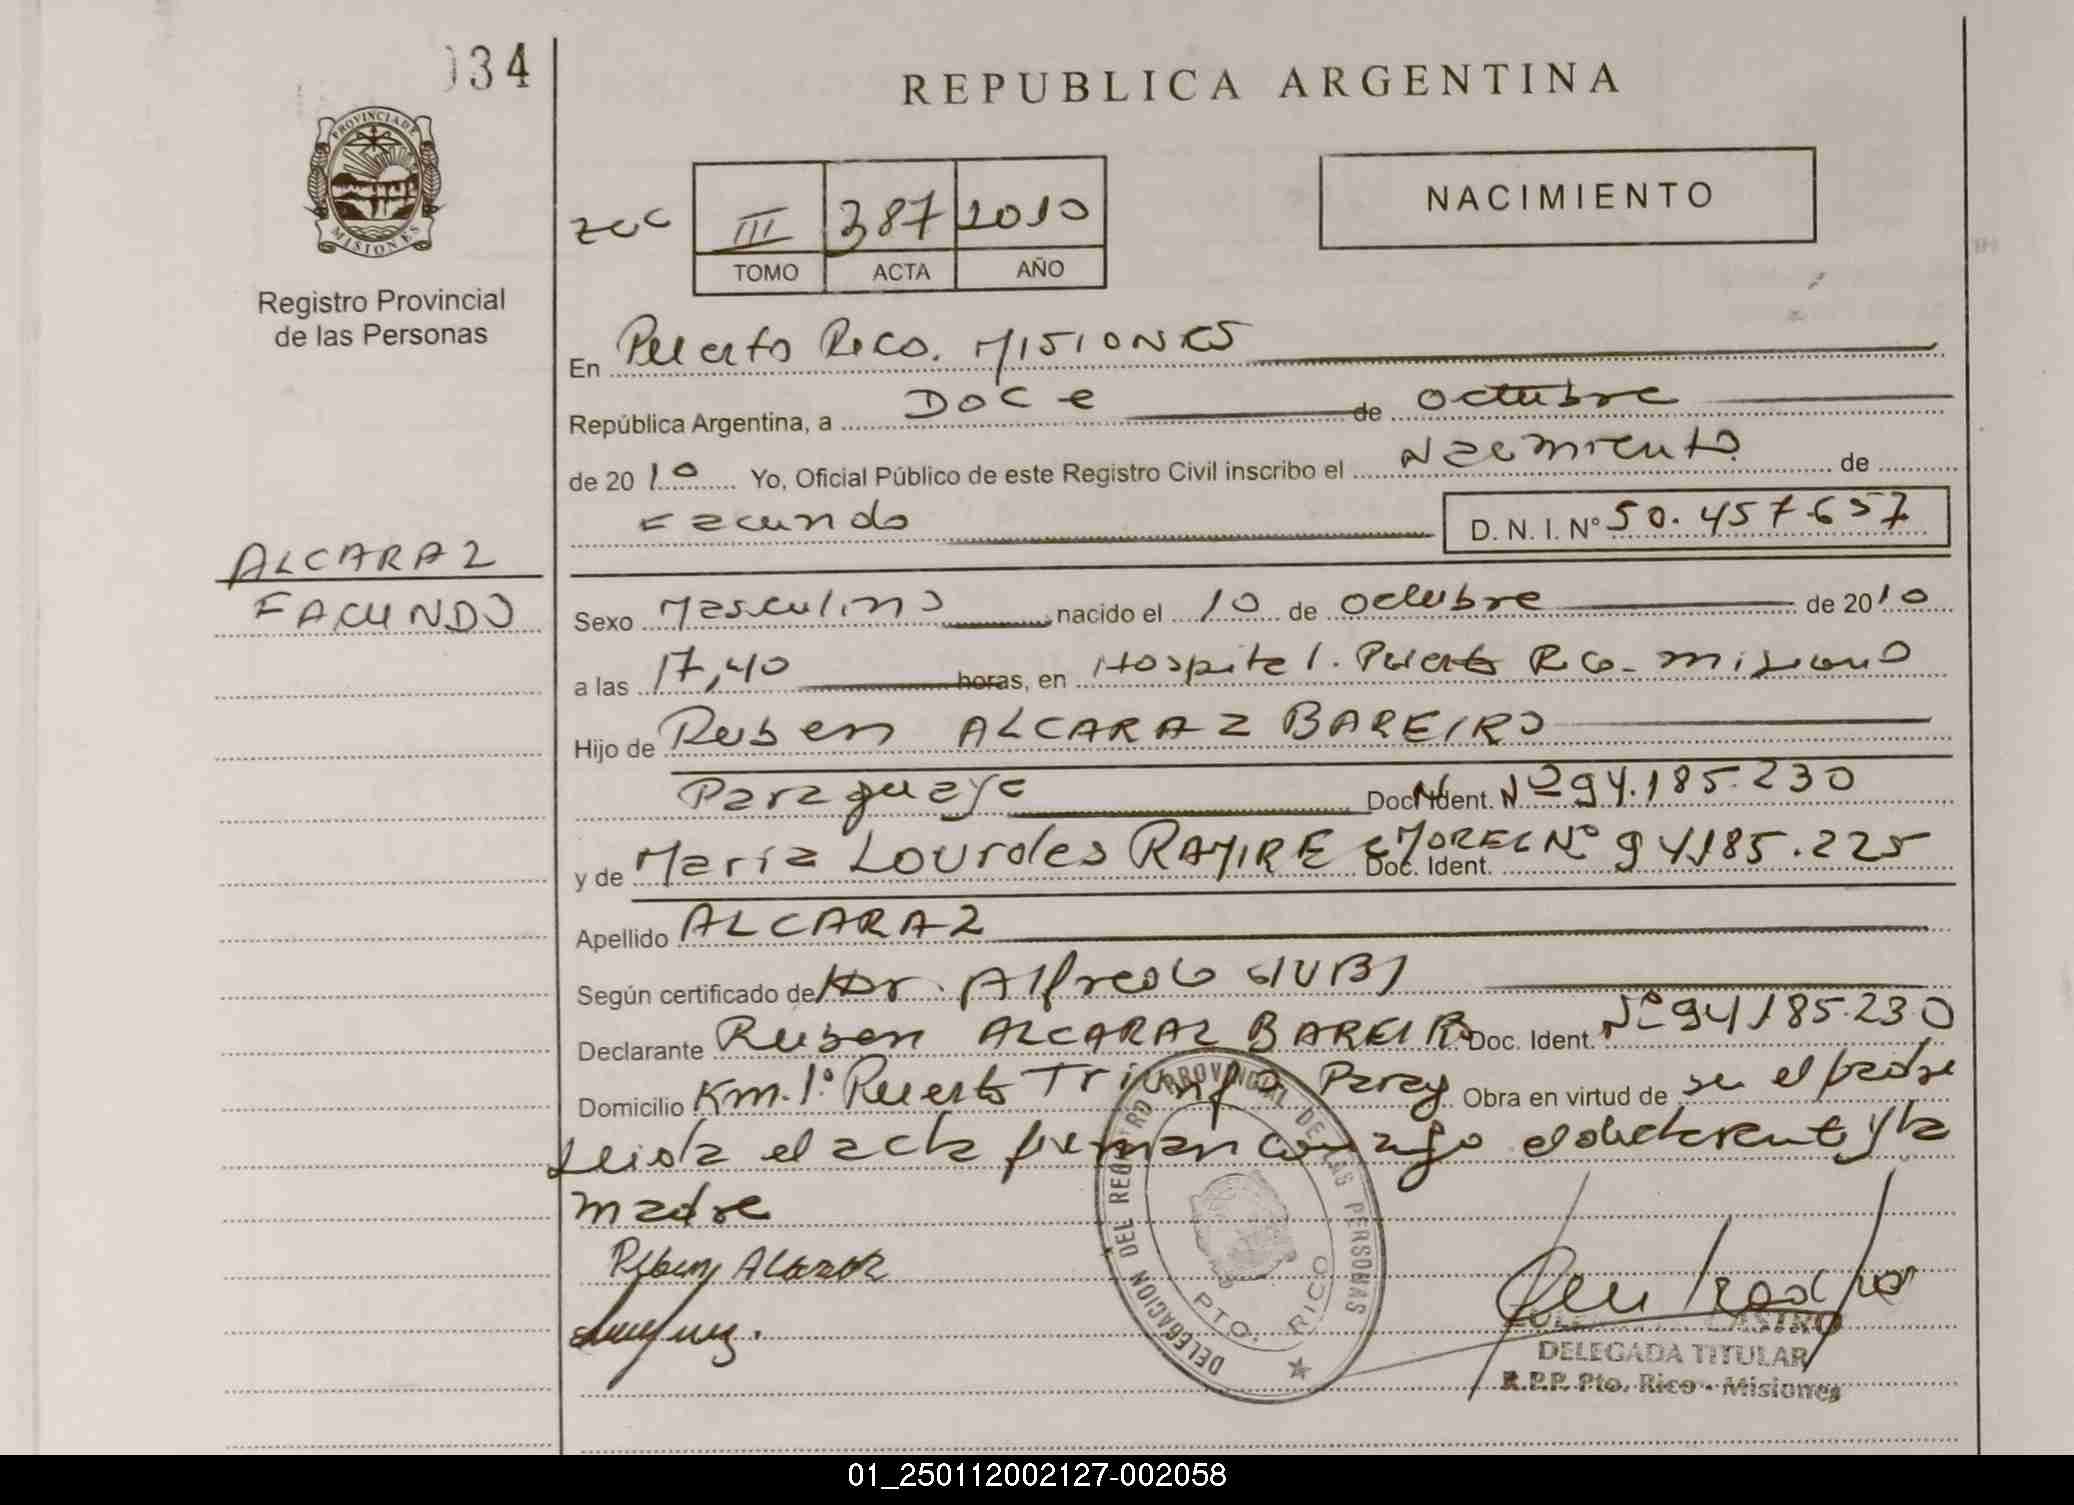 034
REPUBLICA ARGENTINA
PROVINCIA DE MISIONES
Registro Provincial
de las Personas
III 387 2010
TOMO ACTA AÑO
NACIMIENTO
En Puerto Rico. MISIONES
República Argentina, a DOCE de octubre
de 2010 Yo, Oficial Público de este Registro Civil inscribo el Nacimiento de
Facundo D. N. I. Nº 50.457.657
ALCARAZ
FACUNDO
Sexo Masculino nacido el 10 de octubre de 2010
a las 17,40 horas, en Hospital. Puerto Rico - misiones
Hijo de Ruben ALCARAZ BAREIRO
Paraguaya Doc. Ident. Nº 94.185.230
y de María Lourdes RAMIREZ MOREL Doc. Ident. Nº 94185.225
Apellido ALCARAZ
Según certificado de Dr. Alfredo
Declarante Ruben ALCARAZ BAREIRO Doc. Ident. Nº 94185.230
Domicilio Km. 1º Puerto Triunfo Paray Obra en virtud de ser el padre
Leida el acta firman conmigo el declarante y la
madre
Ruben Alcaraz
DELEGACION DEL REGISTRO PROVINCIAL DE LAS PERSONAS
PTO. RICO
CASTRO
DELEGADA TITULAR
R.P.P. Pto. Rico - Misiones
01_250112002127-002058